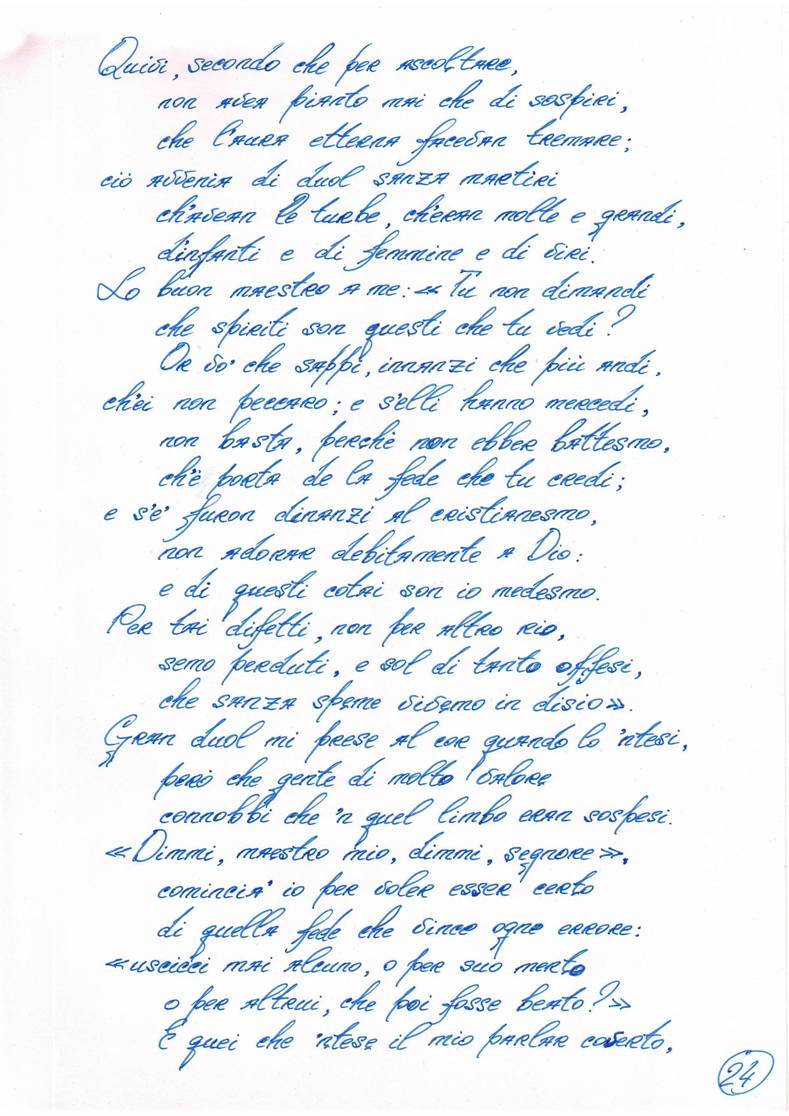 Quivi, secondo che per ascoltare,
non avea pianto mai che di sospiri,
che l'aura etterna facevan tremare;
ciò avvenia di duol sanza martìri
ch'avean le turbe, ch'eran molte e grandi,
d'infanti e di femmine e di viri.
Lo buon maestro a me: «Tu non dimandi
che spiriti son questi che tu vedi?
Or vo' che sappi, innanzi che più andi,
ch'ei non peccaro; e s'elli hanno mercedi,
non basta, perché non ebber battesmo,
ch'è porta de la fede che tu credi;
e s'e' furon dinanzi al cristianesmo,
non adorar debitamente a Dio:
e di questi cotai son io medesmo.
Per tai difetti, non per altro rio,
semo perduti, e sol di tanto offesi,
che sanza speme vivemo in disio».
Gran duol mi prese al cor quando lo 'ntesi,
però che gente di molto valore
connobbi che 'n quel limbo eran sospesi.
«Dimmi, maestro mio, dimmi, segnore»,
comincia' io per voler esser certo
di quella fede che vince ogne errore:
«uscicci mai alcuno, o per suo merto
o per altrui, che poi fosse beato?»
E quei che 'ntese il mio parlar coverto,
24